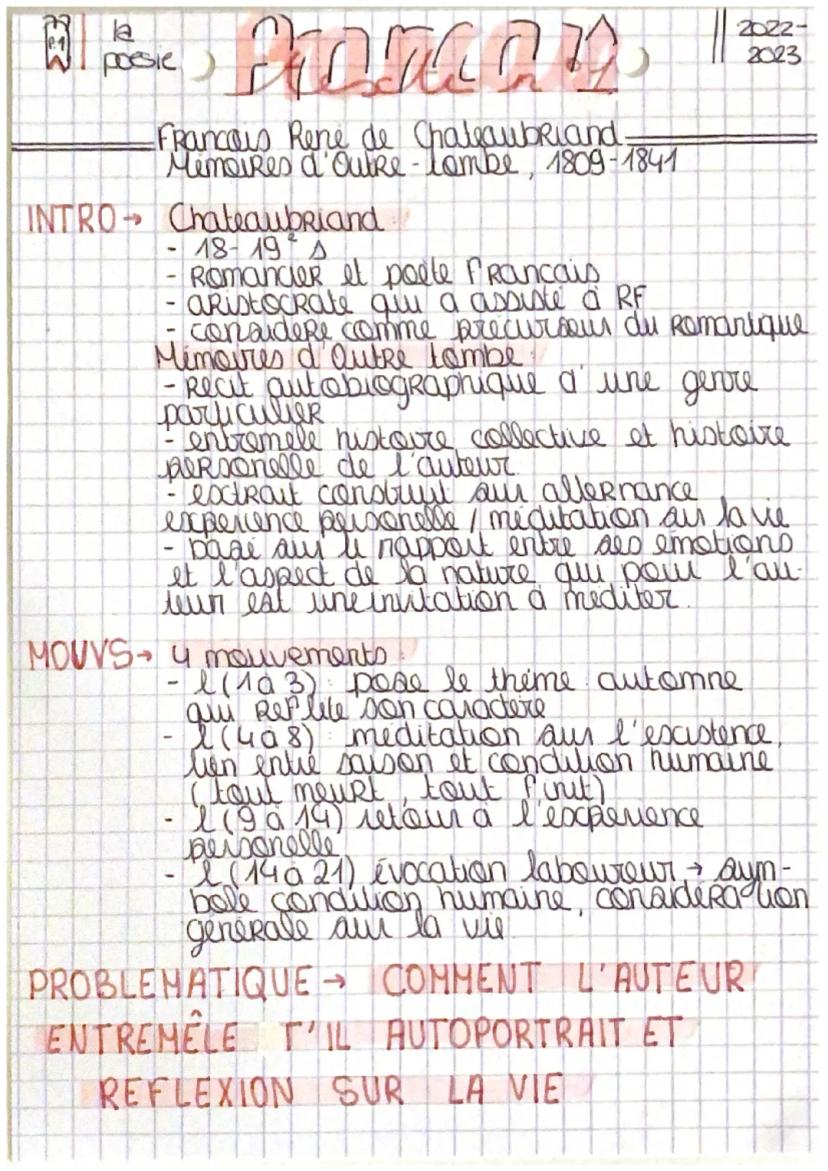 P.1
la
poesie
Francais
2022-
2023
Francois René de Chateaubriand
Mémoires d'Outre-tombe, 1809-1841
INTRO → Chateaubriand :
- 18-19e s
- Romancier et poète francais
- aristocrate qui a assisté à RF
- considere comme precurseur du romantique
Mémoires d'Outre tombe :
- Récit autobiographique d'une genre
particulier
- entremele histoire collective et histoire
personelle de l'auteur
- extrait construit sur alternance
experience personelle / meditation sur la vie
- basé sur le rapport entre ses émotions
et l'aspect de la nature qui pour l'au-
teur est une invitation à mediter.
MOUVS → 4 mouvements :
- l (1 à 3) : pose le thème automne
qui reflète son caractère
- l (4 à 8) : méditation sur l'existence,
lien entre saison et condition humaine
(tout meurt, tout finit)
- l (9 à 14) retour à l'expérience
personelle
- l (14 à 21) évocation laboureur → sym-
bole condition humaine, considération
générale sur la vie
PROBLEMATIQUE → COMMENT L'AUTEUR
ENTREMÊLE T'IL AUTOPORTRAIT ET
REFLEXION SUR LA VIE